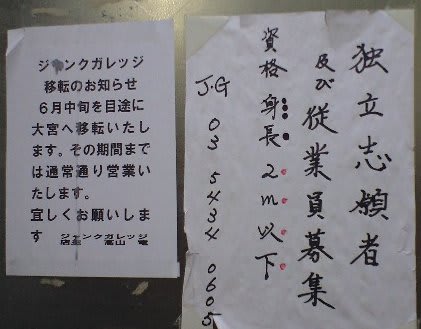 ジャンクガレッジ
移転のお知らせ
６月中旬を目途に
大宮へ移転いたし
ます。その期間まで
は通常通り営業い
たします。
宜しくお願いしま
す
ジャンクガレッジ
店主 高山 竜
独立志願者
及び従業員募集
資格 身長2m以下
J.G 03 5434 0605